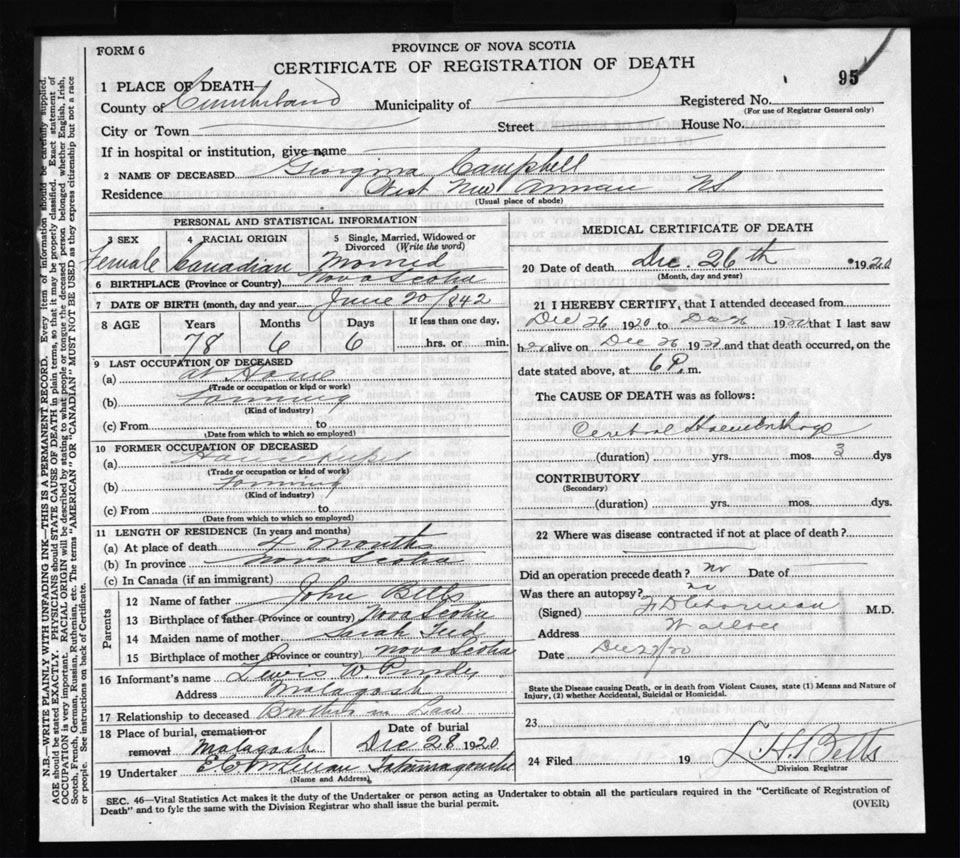 FORM 6
PROVINCE OF NOVA SCOTIA
CERTIFICATE OF REGISTRATION OF DEATH
95
1 PLACE OF DEATH
County of Cumberland Municipality of Registered No.
(For use of Registrar General only)
City or Town Street House No.
If in hospital or institution, give name
2 NAME OF DECEASED Georgina Campbell
Residence West New Annan NS
(Usual place of abode)
PERSONAL AND STATISTICAL INFORMATION
3 SEX 4 RACIAL ORIGIN 5 Single, Married, Widowed or Divorced (Write the word)
Female Canadian
6 BIRTHPLACE (Province or Country) Nova Scotia
7 DATE OF BIRTH (month, day and year) June 20/842
8 AGE Years Months Days If less than one day,
78 6 6 hrs. or min.
9 LAST OCCUPATION OF DECEASED
(a) at Home
(Trade or occupation or kind or work)
(b) Farming
(Kind of industry)
(c) From to
(Date from which to which so employed)
10 FORMER OCCUPATION OF DECEASED
(a) House Keeper
(Trade or occupation or kind of work)
(b) Farming
(Kind of industry)
(c) From to
(Date from which to which so employed)
11 LENGTH OF RESIDENCE (In years and months)
(a) At place of death months
(b) In province Nova Scotia
(c) In Canada (if an immigrant)
Parents
12 Name of father John Betts
13 Birthplace of father (Province or country) Nova Scotia
14 Maiden name of mother Sarah
15 Birthplace of mother (Province or country) Nova Scotia
16 Informant's name Lewis W. Purdy
Address Malagash
17 Relationship to deceased Brother in Law
18 Place of burial, cremation or removal Malagash
Date of burial Dec 28 1920
19 Undertaker Tatamagouche
(Name and Address)
MEDICAL CERTIFICATE OF DEATH
20 Date of death Dec. 26th 1920
(Month, day and year)
21 I HEREBY CERTIFY, that I attended deceased from
Dec 26 1920 to Dec 26 1920 that I last saw
her alive on Dec 26 1920 and that death occurred, on the
date stated above, at 6 P. m.
The CAUSE OF DEATH was as follows:
Cerebral Haemorrhage
(duration) yrs. mos. 3 dys
CONTRIBUTORY
(Secondary)
(duration) yrs. mos. dys.
22 Where was disease contracted if not at place of death?
Did an operation precede death? no Date of
Was there an autopsy? no
(Signed) M.D.
Address Wallace
Date
State the Disease causing Death, or in death from Violent Causes, state (1) Means and Nature of
Injury, (2) whether Accidental, Suicidal or Homicidal.
23
24 Filed 19 L. H. Betts
Division Registrar
SEC. 46—Vital Statistics Act makes it the duty of the Undertaker or person acting as Undertaker to obtain all the particulars required in the "Certificate of Registration of
Death" and to fyle the same with the Division Registrar who shall issue the burial permit. (OVER)
N.B.—WRITE PLAINLY WITH UNFADING INK—THIS IS A PERMANENT RECORD. Every item of information should be carefully supplied.
AGE should be stated EXACTLY. PHYSICIANS should STATE CAUSE OF DEATH in plain terms, so that it may be properly classified. Exact statement of
OCCUPATION is very important. RACIAL ORIGIN will be described by stating to what people or tongue the deceased person belonged whether English, Irish,
Scotch, French, German, Russian, Ruthenian, etc. The terms "AMERICAN" OR "CANADIAN" MUST NOT BE USED as they express citizenship but not a race
or people. See instructions on back of Certificate.